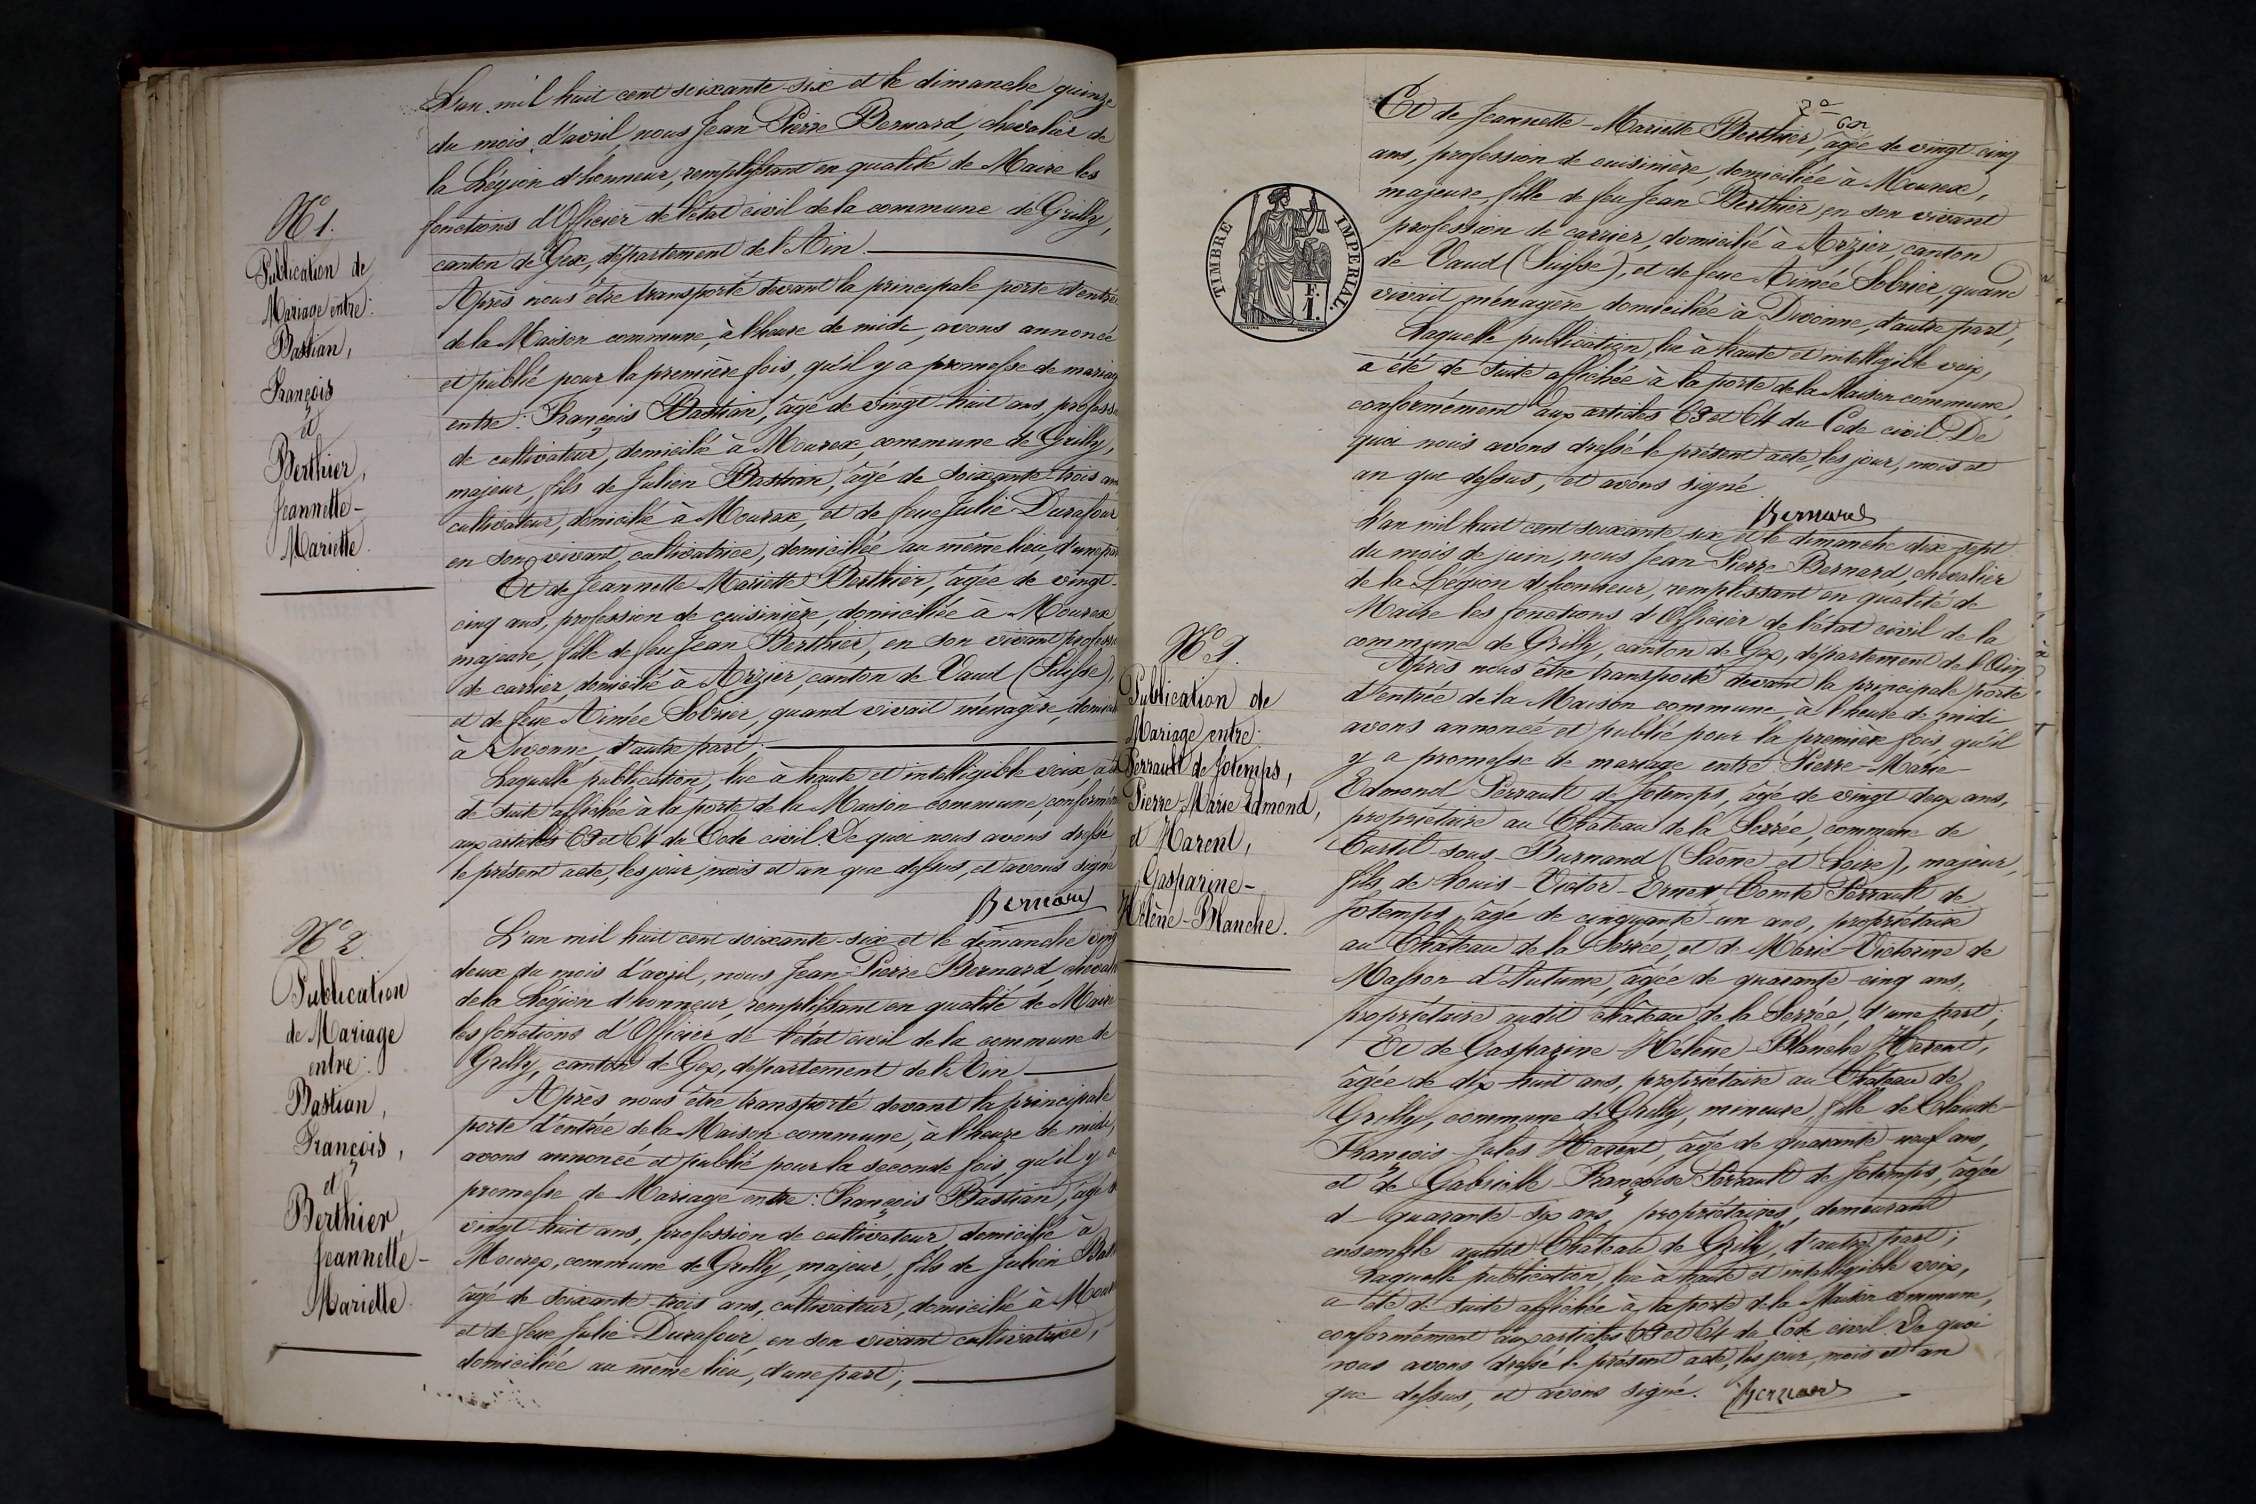 L'an mil huit cent soixante-six et le dimanche quinze
du mois d'avril, nous Jean-Pierre Bernard, chevalier de
la Légion d'honneur, remplissant en qualité de Maire les
fonctions d'Officier de l'état civil de la commune de Grilly,
canton de Gex, département de l'Ain
N° 1.
Publication de
Mariage entre:
Bastian,
François
et
Berthier,
Jeannette-
Mariette.
Après nous être transporté devant la principale porte d'entrée
de la Maison commune, à l'heure de midi, avons annoncé
et publié pour la première fois, qu'il y a promesse de mariag
entre: François Bastian, âgé de vingt-huit ans, professi
de cultivateur, domicilié à Mourex, commune de Grilly,
majeur, fils de Julien Bastian, âgé de soixante-trois ans
cultivateur, domicilié à Mourex, et de feue Julie Durafour
en son vivant cultivatrice, domiciliée au même lieu, d'une par
Et de Jeannette-Mariette Berthier, âgée de vingt-
cinq ans, profession de cuisinière, domiciliée à Mourex
majeure, fille de feu Jean Berthier, en son vivant professi
de carrier, domicilié à Arzier, canton de Vaud (Suisse),
et de feue Aimée Sobrier, quand vivait ménagère, domici
à Divonne, d'autre part;
Laquelle publication, lue à haute et intelligible voix, a
de suite affichée à la porte de la Maison commune, conformém
aux articles 63 et 64 du Code civil. De quoi nous avons dressé
le présent acte, les jour, mois et an que dessus, et avons signé
Bernard
N° 2.
Publication
de Mariage
entre:
Bastian,
François,
et
Berthier
Jeannette-
Mariette.
L'an mil huit cent soixante-six et le dimanche ving
deux du mois d'avril, nous Jean-Pierre Bernard, cheval
de la Légion d'honneur, remplissant en qualité de Maire
les fonctions d'Officier de l'état civil de la commune de
Grilly, canton de Gex, département de l'Ain
Après nous être transporté devant la principale
porte d'entrée de la Maison commune, à l'heure de midi,
avons annoncé et publié pour la seconde fois, qu'il y a
promesse de Mariage entre: François Bastian, âgé d
vingt-huit ans, profession de cultivateur domicilié à
Mourex, commune de Grilly, majeur, fils de Julien Bast
âgé de soixante-trois ans, cultivateur, domicilié à Mour
et de feue Julie Durafour, en son vivant cultivatrice,
domiciliée au même lieu, d'une part;
Et de Jeannette-Mariette Berthier, âgée de vingt-cinq
ans, profession de cuisinière, domiciliée à Mourex,
majeure, fille de feu Jean Berthier, en son vivant
profession de carrier, domicilié à Arzier, canton
de Vaud (Suisse), et de feue Aimée Sobrier, quand
vivait ménagère, domiciliée à Divonne, d'autre part;
Laquelle publication, lue à haute et intelligible voix,
a été de suite affichée à la porte de la Maison commune,
conformément aux articles 63 et 64 du Code civil. De
quoi nous avons dressé le présent acte, les jour, mois et
an que dessus, et avons signé
Bernard
TIMBRE IMPERIAL.
F.
1.
N° 3.
Publication de
Mariage entre:
Perrault de Jotemps,
Pierre-Marie Edmond,
et Harent,
Gasparine-
Hélène-Blanche.
L'an mil huit cent soixante-six et le dimanche dix-sept
du mois de juin, nous Jean-Pierre Bernard, chevalier
de la Légion d'honneur, remplissant en qualité de
Maire les fonctions d'Officier de l'état civil de la
commune de Grilly, canton de Gex, département de l'Ain
Après nous être transporté devant la principale porte
d'entrée de la Maison commune, à l'heure de midi
avons annoncé et publié pour la première fois, qu'il
y a promesse de mariage entre: Pierre-Marie-
Edmond Perrault de Jotemps, âgé de vingt-deux ans,
propriétaire au Château de la Serrée, commune de
Curtil-sous-Burnand (Saône et Loire), majeur,
fils de Louis-Victor-Ernest Comte Perrault de
Jotemps, âgé de cinquante-un ans, propriétaire
au Château de la Serrée, et de Marie-Victorine de
Masson d'Autume, âgée de quarante-cinq ans,
propriétaire audit château de la Serrée, d'une part;
Et de Gasparine-Hélène-Blanche Harent,
âgée de dix-huit ans, propriétaire au Château de
Grilly, commune de Grilly, mineure, fille de Claude-
François-Jules Harent, âgé de quarante-neuf ans,
et de Gabrielle Françoise Perrault de Jotemps, âgée
d quarante-six ans, propriétaires, demeurant
ensemble audit Château de Grilly, d'autre part;
Laquelle publication, lue à haute et intelligible voix,
a été de suite affichée à la porte de la Maison commune,
conformément aux articles 63 et 64 du Code civil. De quoi
nous avons dressé le présent acte, les jour, mois et an
que dessus, et avons signé. Bernard